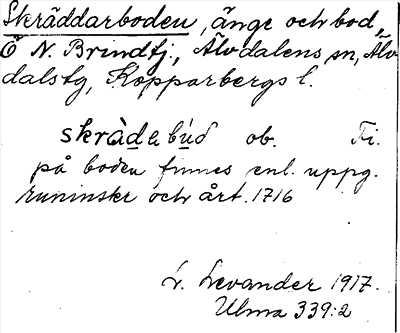 Skräddarboden, änge och bod,
Ö N. Brindtj., Älvdalens sn, Älv
dals tg, Kopparbergs l.
skràdabúd ob. Fi.
på boden finnes enl. uppg.
runinskr och årt. 1716
L. Levander 1917.
Ulma 339:2